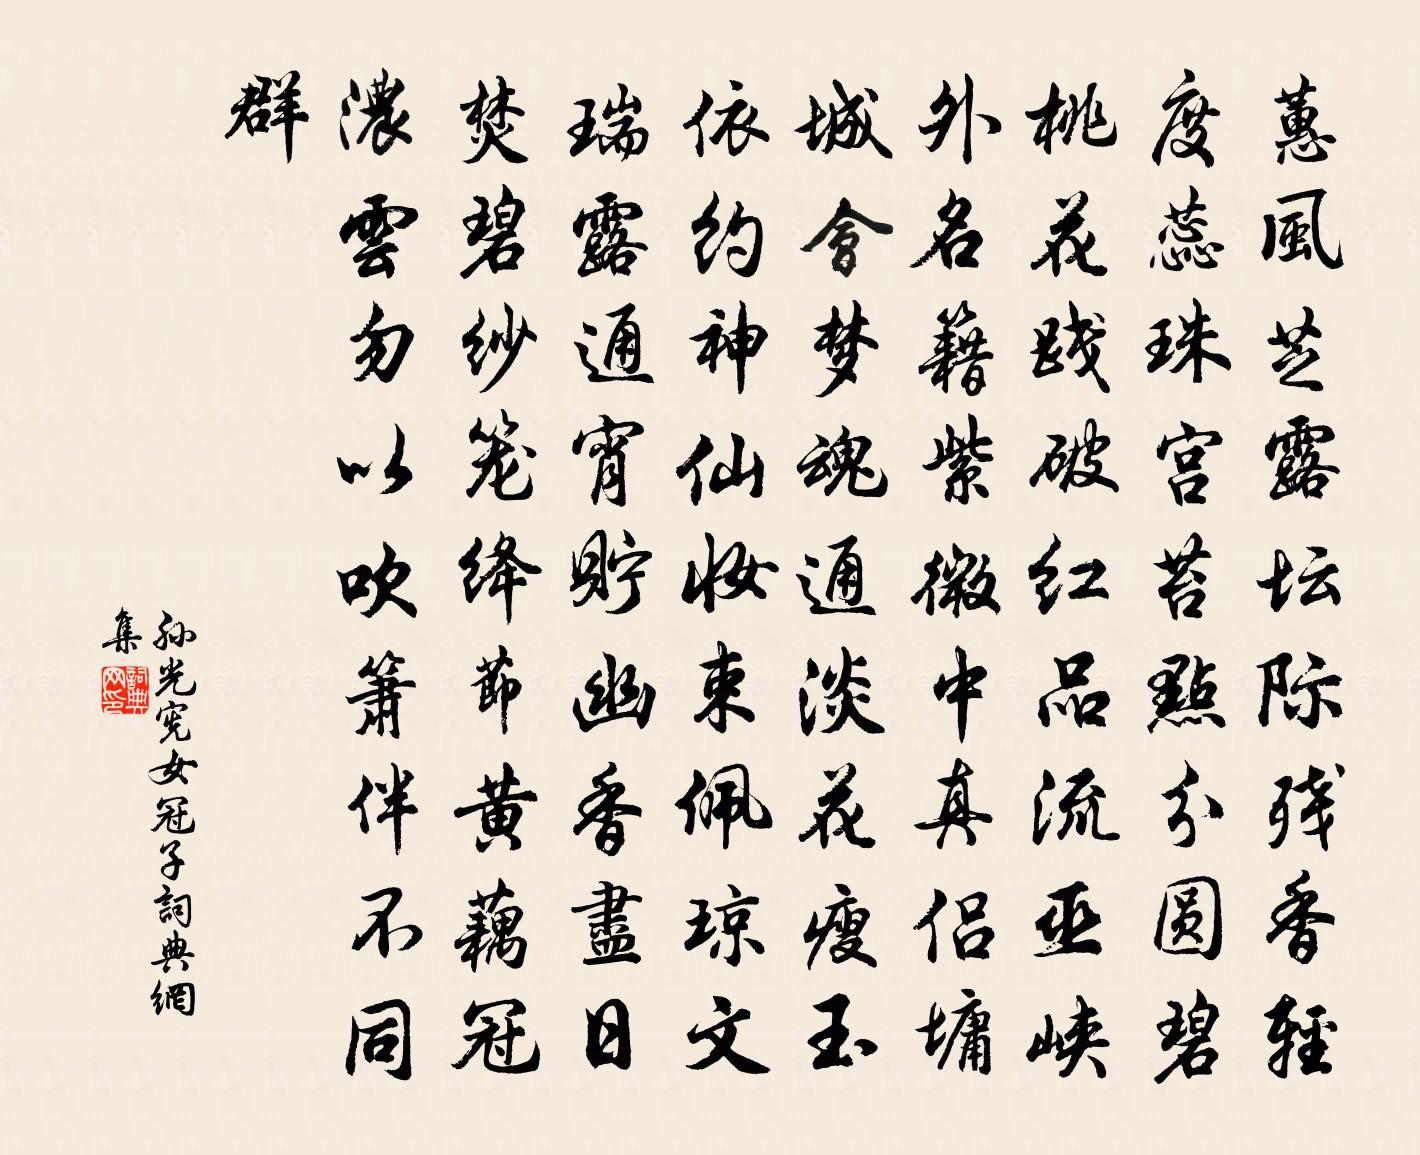 蕙風芝露坛际残香輕
度蕊珠宫苔點分圆碧
桃花践破红品流巫峡
外名籍紫微中真侣墉
城會梦魂通淡花瘦玉
依约神仙妆束佩琼文
瑞露通宵贮幽香盡日
焚碧纱笼绛節黄藕冠
濃雲勿以吹箫伴不同
群
孙光宪女冠子詞典網
集
詞典网印